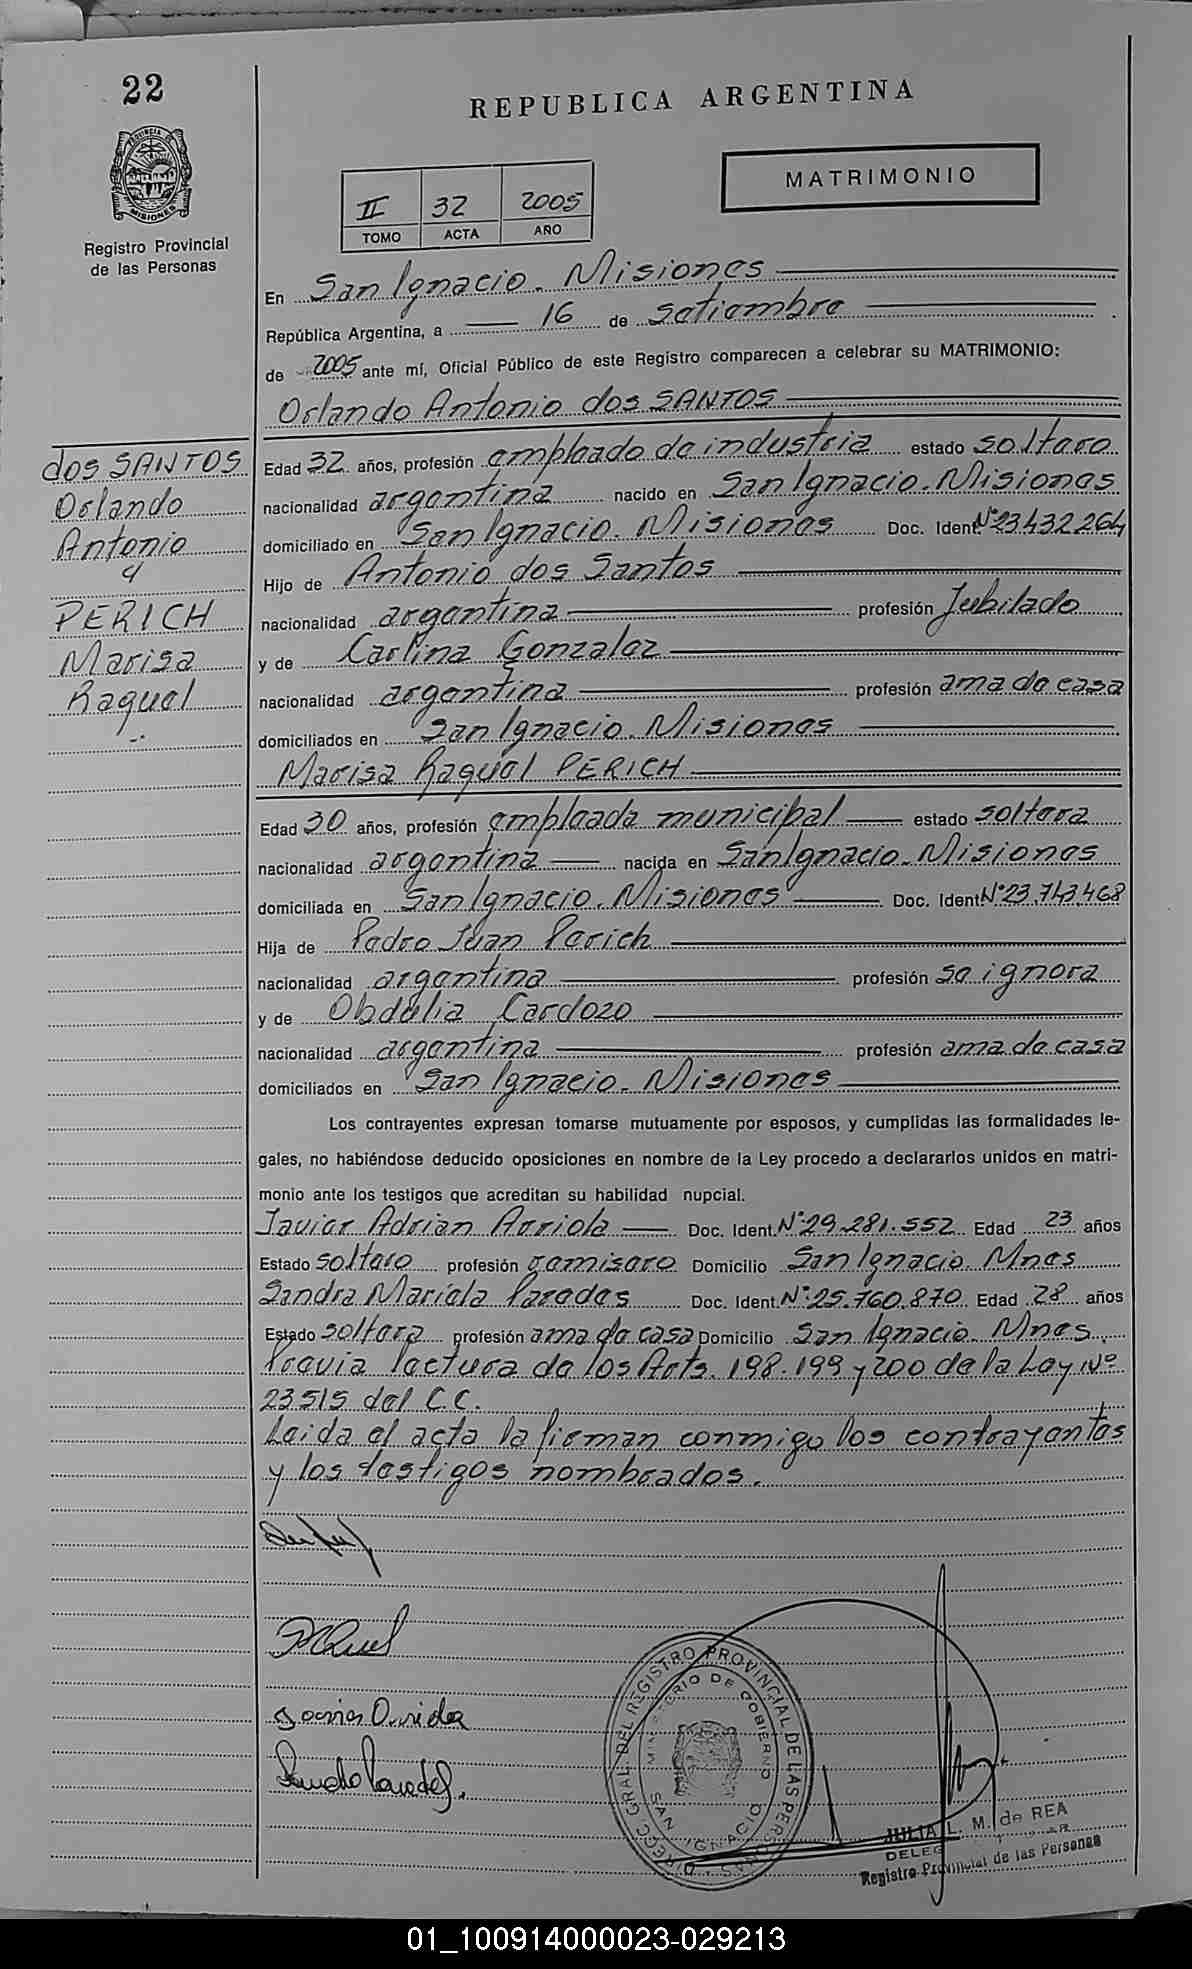 22
REPUBLICA ARGENTINA
PROVINCIA DE MISIONES
MATRIMONIO
II 32 2005
TOMO ACTA AÑO
Registro Provincial
de las Personas
En San Ignacio. Misiones
República Argentina, a 16 de setiembre
de 2005 ante mí, Oficial Público de este Registro comparecen a celebrar su MATRIMONIO:
Orlando Antonio dos SANTOS
dos SANTOS
Orlando
Antonio
y
PERICH
Marisa
Raquel
Edad 32 años, profesión empleado de industria estado soltero
nacionalidad argentina nacido en San Ignacio. Misiones
domiciliado en San Ignacio. Misiones Doc. Ident. Nº 23.432.264
Hijo de Antonio dos Santos
nacionalidad argentina profesión Jubilado
y de Carlina Gonzalez
nacionalidad argentina profesión ama de casa
domiciliados en San Ignacio. Misiones
Marisa Raquel PERICH
Edad 30 años, profesión empleada municipal estado soltera
nacionalidad argentina nacida en San Ignacio. Misiones
domiciliada en San Ignacio. Misiones Doc. Ident. Nº 23.743.468
Hija de Pedro Juan Perich
nacionalidad argentina profesión se ignora
y de Obdulia Cardozo
nacionalidad argentina profesión ama de casa
domiciliados en San Ignacio. Misiones
Los contrayentes expresan tomarse mutuamente por esposos, y cumplidas las formalidades le-
gales, no habiéndose deducido oposiciones en nombre de la Ley procedo a declararlos unidos en matri-
monio ante los testigos que acreditan su habilidad nupcial.
Javier Adrian Arriola Doc. Ident. Nº 29.281.552 Edad 23 años
Estado soltero profesión remisero Domicilio San Ignacio. Mnes
Sandra Mariela Paredes Doc. Ident. Nº 25.760.870 Edad 28 años
Estado soltera profesión ama de casa Domicilio San Ignacio. Mnes.
Previa lectura de los Arts. 198.199 y 200 de la Ley Nº
23515 del C.C.
Leida el acta la firman conmigo los contrayentes
y los testigos nombrados.
DIRECC. GRAL. DEL REGISTRO PROVINCIAL DE LAS PERSONAS
MINISTERIO DE GOBIERNO
SAN IGNACIO
JULIA L. M. de REA
Registro Provincial de las Personas
01_100914000023-029213